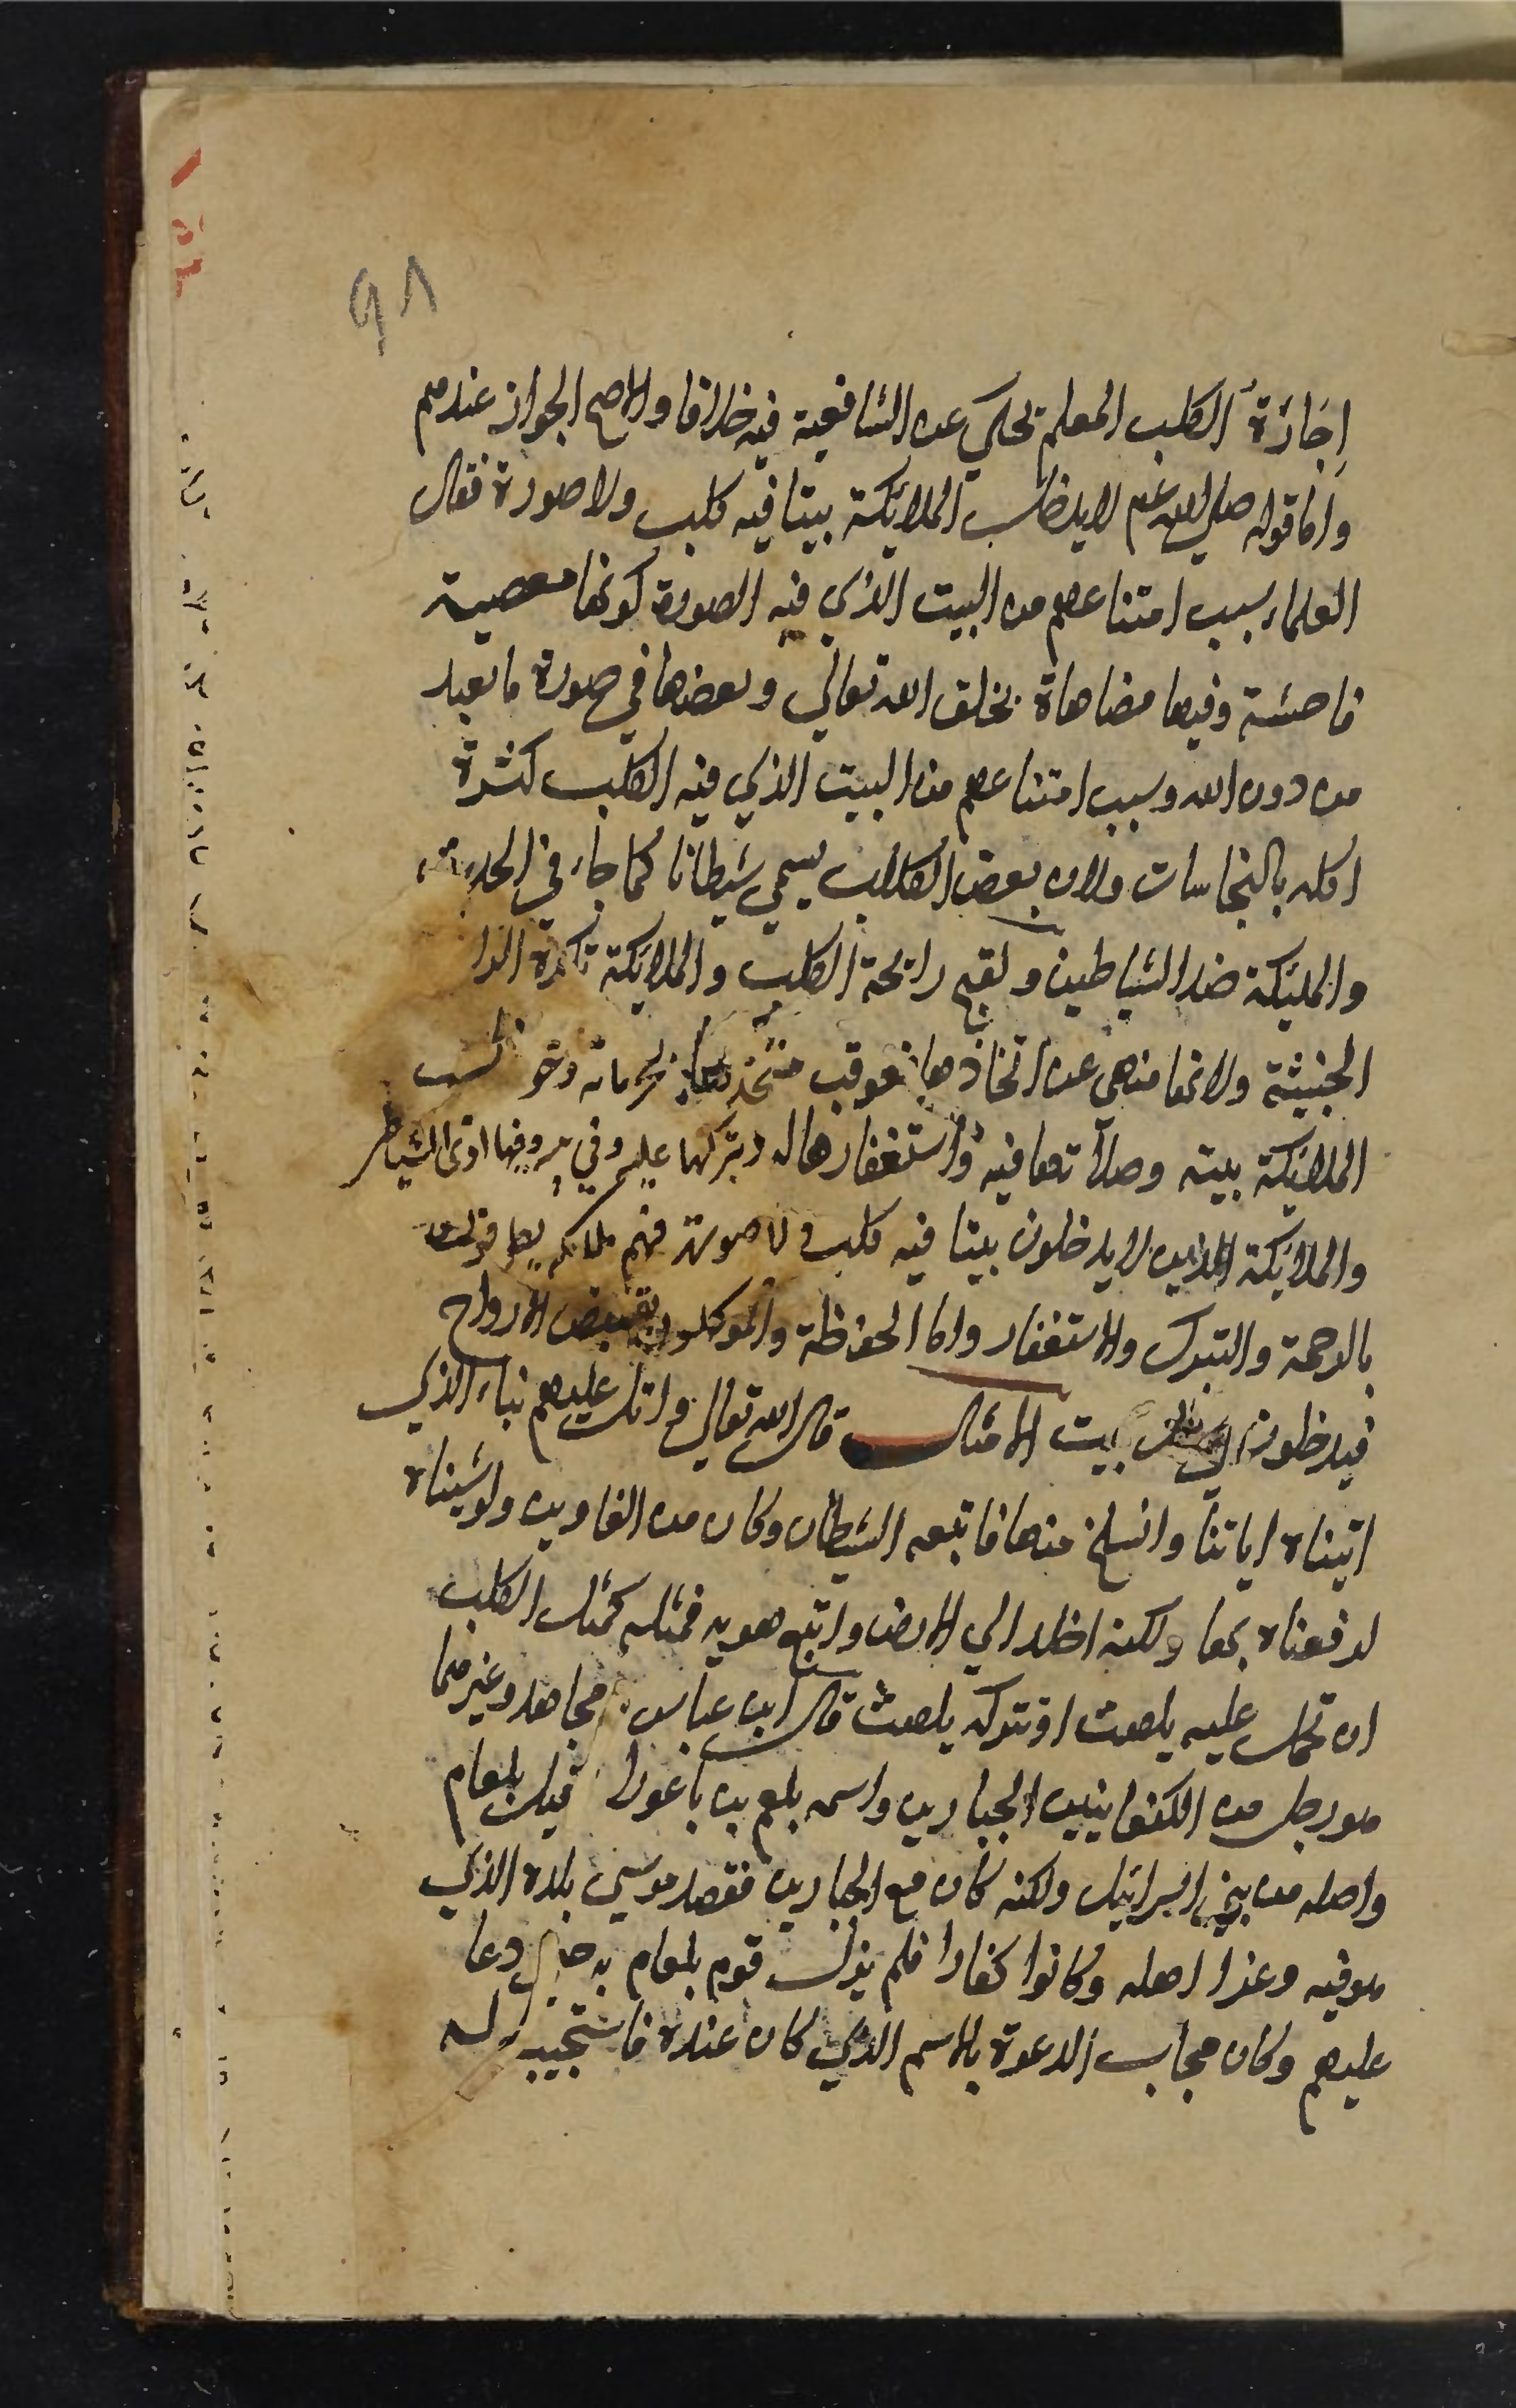 ٩٨
إجَازَة الكلب المعلم تحكي عن الشافعية فيه خلافا والاصح الجواز عندهم
واما قوله صلى الله عم لا يدخل الملائكة بيتا فيه كلب ولا صورة فقال
العلماء سبب امتناعهم من البيت الذي فيه الصورة كونها معصية
فاحشة وفيها مضاهاة بخلق الله تعالي وبعضها في صورة ما يعبد
من دون الله وسبب امتناعهم من البيت الذي فيه الكلب كثرة
اكله بالنجاسات ولان بعض الكلاب يسمي شيطانا كما جاء في الحديث
والمليكة ضد الشياطين ولقبح رايحة الكلب والملائكة تكره الرا
الخبيثة ولانها منهي عن اتخاذها فعوقب متخذها بحرمانه دخول
الملائكة بيته وصلاتها فيه واستغفارها له وتبركها عليه وفي بيته ودفعها اذي الشياطين
والملائكة الذين لا يدخلون بيتا فيه كلب ولا صورة فهم ملائكة يطوفون
بالرحمة والتبرك والاستغفار واما الحفظة والموكلون بقبض الارواح
فيدخلون في كل بيت الامثال قال الله تعالي واتل عليهم نباء الذي
اتيناه اياتنا وانسلخ منها فاتبعه الشيطان وكان من الغاوين ولو شيناه
لرفعناه بها ولكنه اخلد الي الارض واتبع هويه فمثله كمثل الكلب
ان تحمل عليه يلهث او تتركه يلهث قال ابن عباس ومجاهد وغيرهما
هو رجل من الكنعانيين الجبارين واسمه بلعم بن باعورا وقيل بلعام
واصله من بني اسرائيل ولكنه كان مع الجبارين فقصد موسي بلده الذي
هو فيه وغزا اهله وكانوا كفارا فلم يزل قوم بلعام به حتى دعا
عليهم وكان مجاب الدعوة بالاسم الذي كان عنده فاستجيب له